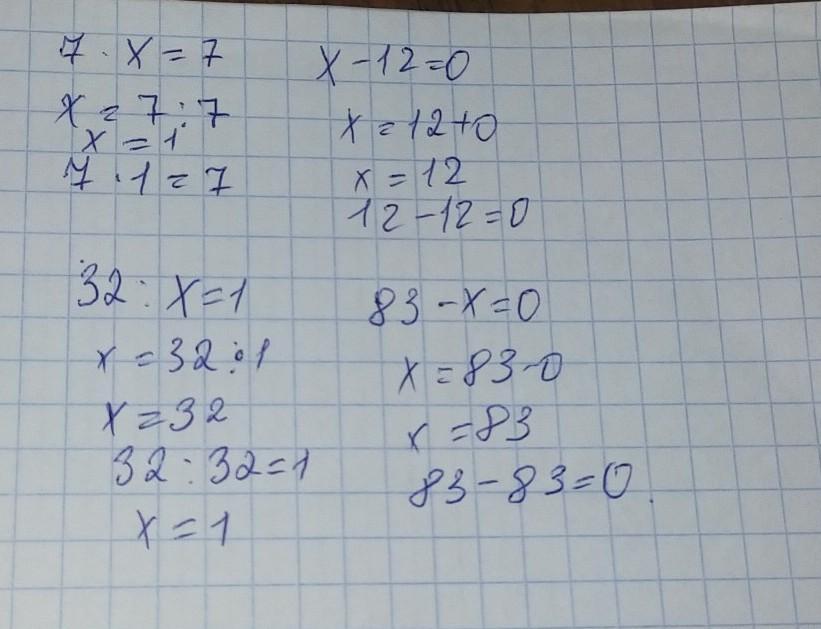 7 · x = 7
x = 7 : 7
x = 1
7 · 1 = 7
x - 12 = 0
x = 12 + 0
x = 12
12 - 12 = 0
32 : x = 1
x = 32 : 1
x = 32
32 : 32 = 1
x = 1
83 - x = 0
x = 83 - 0
x = 83
83 - 83 = 0.